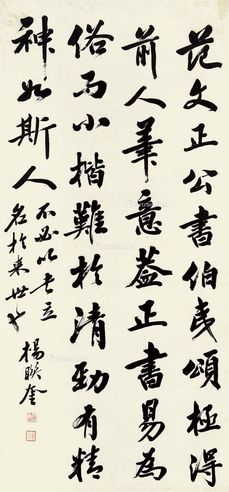 范文正公書伯夷頌極得
前人筆意蓋正書易為
俗而小楷難於清勁有精
神如斯人
不必以書立
名於來世也
楊晙奎